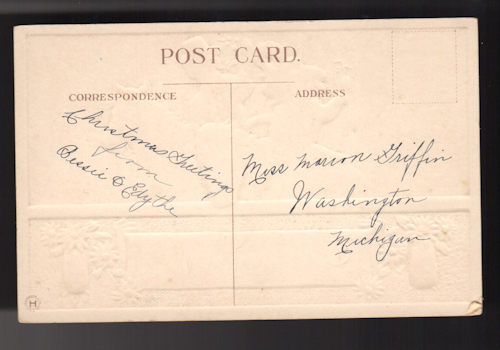 POST CARD.
CORRESPONDENCE
ADDRESS
Christmas Greetings
from
Bessie & Edythe
Miss Marion Griffin
Washington
Michigan
H